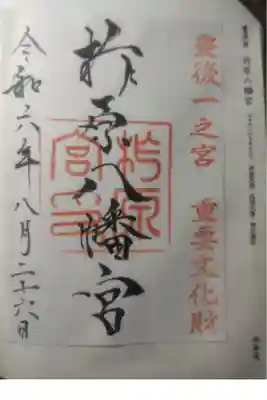 豊後一之宮 重要文化財
柞原八幡宮
令和六年八月二十六日